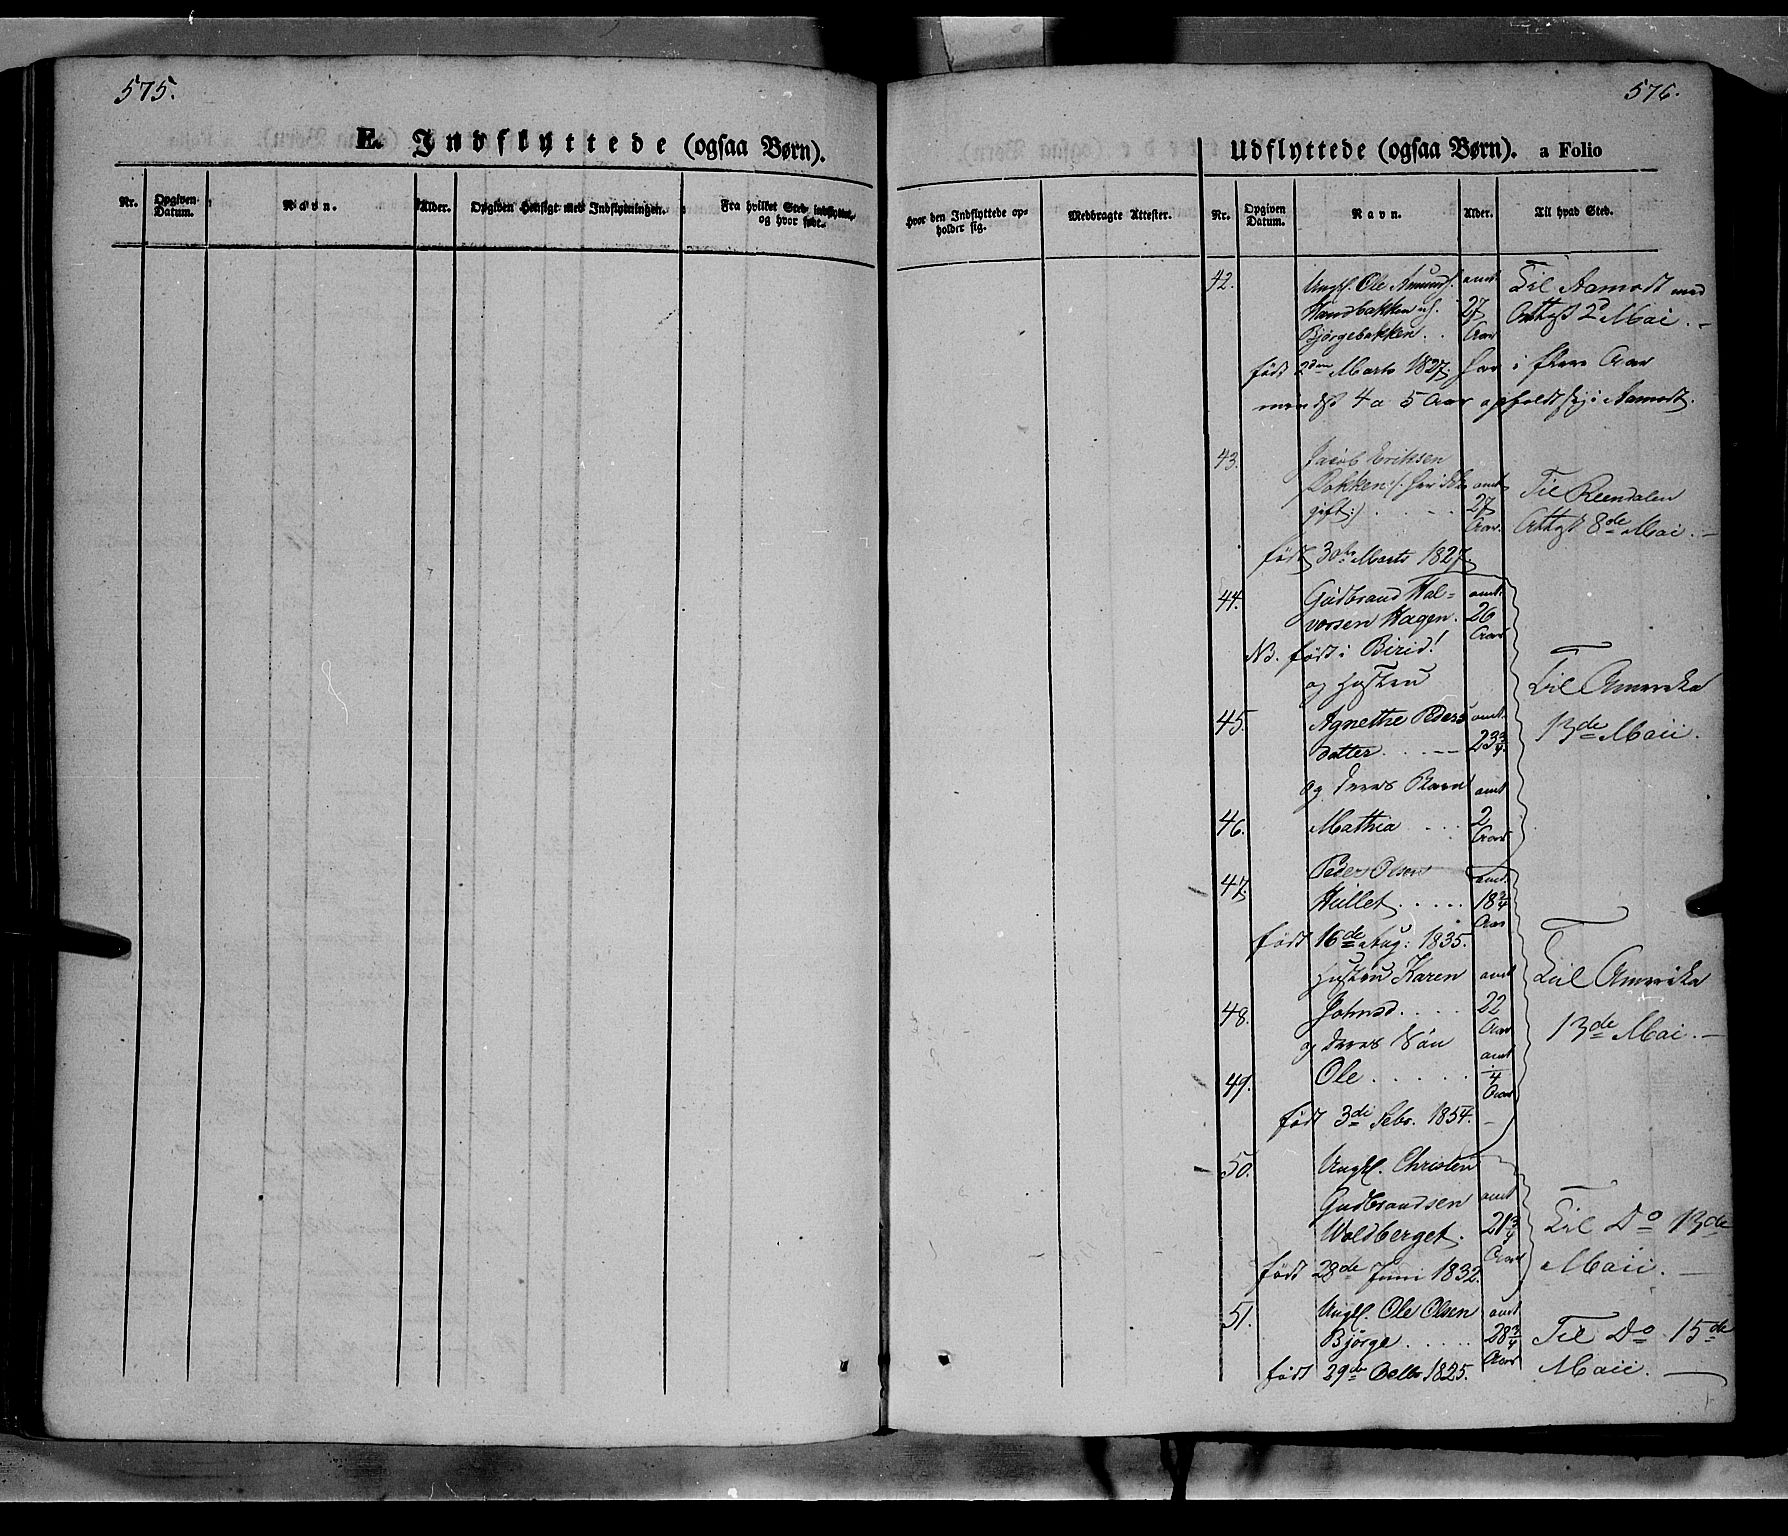 575.
E. Indflyttede (ogsaa Børn).
Nr.
Opgiven Datum.
Navn.
Alder.
Opgiven Hensigt med Indflytningen.
Fra hvilket Sted indflyttet, og hvor født.
576.
Udflyttede (ogsaa Børn). a Folio
Hvor den Indflyttede opholder sig.
Medbragte Attester.
Nr.
Opgiven Datum.
Navn.
Alder.
Til hvad Sted.
42. Ungk. Ole Amunds. omt. Til Aamodt med
27 Attest 2 Mai. -
Bjørgebakken. . Aar
født 2den Marts 1827. har i flere Aar
mindst 4 a 5 Aar opholdt sig i Aamodt.
43. Jacob Eriksen
Bakken /: har ikke omt Til Reendalen
gift :/ . . . . 27 Aar. Attest 8de Mai. -
født 30te Marts 1827.
44. Gudbrand Hal- omt.
vorsen Hagen. 26 Aar
NB. født i Birid!
og Hustru
Til Amerika
45. Agnethe Peders omt. 13de Maii.
datter. . . . 23 3/4.
og deres Barn omt
46. Mathea . . . 2 Aar
47. Peder Olsen omt.
Hullet . . . . . 18 3/4 Aar
født 16de Aug: 1835.
Hustru Karen omt Til Amerika
48. Johnsd. . . . . 22 Aar 13de Mai. -
og deres Søn omt
49. Ole . . . . . . 1/4 Aar
født 3di Febr. 1854. -
50. Ungk. Christen
Gudbrandsen omt
Woldberget. 21 3/4 Aar Til Do 13de
født 28de Juni 1832. Maii. -
51. Ungk. Ole Olsen omt
Bjørge. . . . . 28 3/4 Aar Til Do 15de
født 29de Octbr 1825. Maii. -